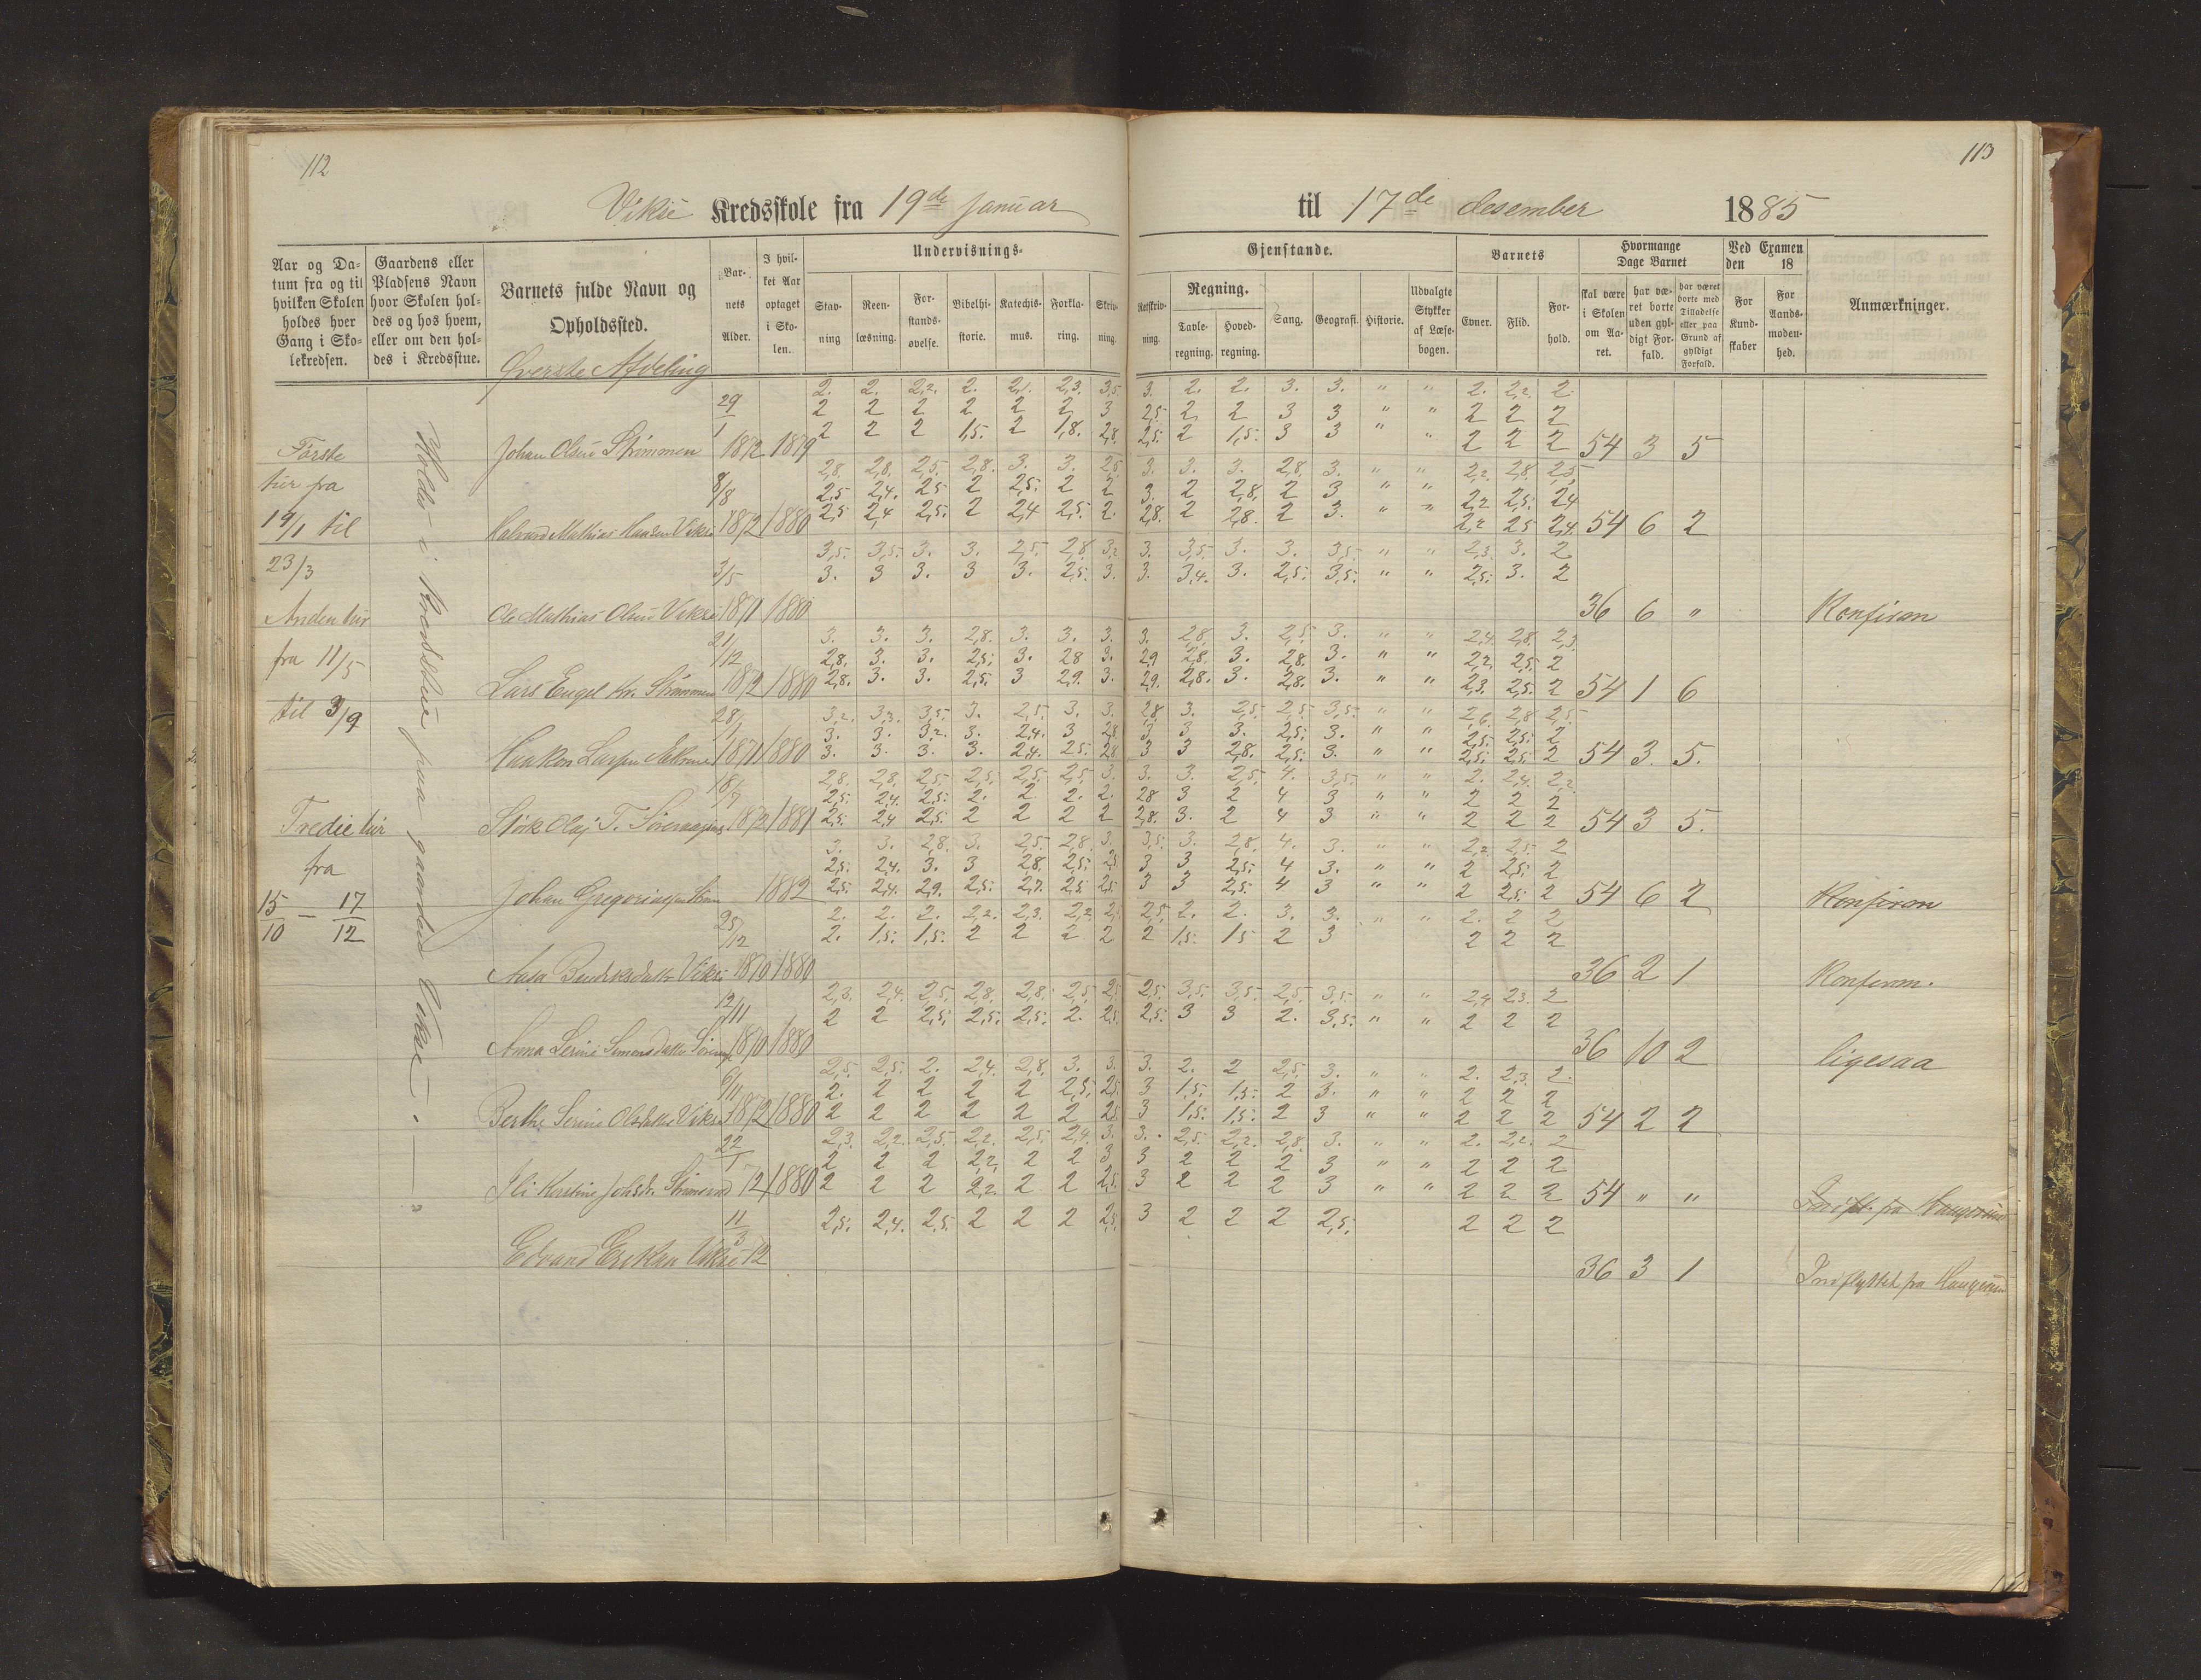 112
113
Vikse Kredsskole fra 19de Januar til 17de desember 1885
Aar og Datum fra og til hvilken Skolen holdes hver Gang i Skolekredsen.
Gaardens eller Pladsens Navn hvor Skolen holdes og hos hvem, eller om den holdes i Kredsstue.
Barnets fulde Navn og Opholdssted.
Barnets Alder.
I hvilket Aar optaget i Skolen.
Undervisnings-
Gjenstande.
Stavning
Reenlæsning.
Forstandsøvelse.
Bibelhistorie.
Katechismus.
Forklaring.
Skrivning.
Retskrivning.
Regning.
Tavleregning.
Hovedregning.
Sang.
Geografi.
Historie.
Udvalgte Stykker af Læsebogen.
Barnets
Evner.
Flid.
Forhold.
Hvormange Dage Barnet
skal være i Skolen om Aaret.
har været borte uden gyldigt Forfald.
har været borte med Tilladelse eller paa Grund af gyldigt Forfald.
Ved Examen den 18
For Kundskaber
For Aandsmodenhed.
Anmærkninger.
Øverste Afdeling
Første
tur fra
19/1 til
23/3
Anden tur
fra 11/5
til 3/9
Tredie tur
fra
15/10 — 17/12
Holdes i Kredsstue paa gaarden Vikse.
2. 2. 2,2. 2. 2,1. 2,3. 3,5. 3. 2. 2. 3. 3. " " 2. 2,2. 2.
29/1 2 2 2 2 2 2 3 2,5. 2 2 3 3 " " 2 2 2
Johan Olsen Strømmen 1872 1879 2 2 2 1,5. 2 1,8. 2,8. 2,5. 2 1,5. 3 3 " " 2 2 2 54 3 5
2,8. 2,8. 2,5. 2,8. 3. 3. 2,5 3. 3. 3. 2,8. 3. " " 2,2. 2,8. 2,5.
8/8 2,5 2,4. 2,5 2 2,5. 2 2 3. 2 2,8. 2 3 " " 2,2 2,5. 2,4
Halvard Mathias Hansen Vikse 1872 1880 2,5 2,4 2,5. 2 2,4 2,5. 2. 2,8. 2 2,8. 2 3. " " 2,2 2,5 2,4. 54 6 2
3,5. 3,5. 3. 3. 2,5. 2,8. 3,2 3. 3,5. 3. 3. 3,5. " " 2,3. 3. 2
3/5 3. 3 3. 3 3. 2,5. 3. 3. 3,4. 3. 2,5. 3,5. " " 2,5. 3. 2
Ole Mathias Olsen Vikse 1871 1880 36 6 " Konfirm
3. 3. 3. 2,8. 3. 3. 3. 3. 2,8. 3. 2,5. 3. " " 2,4. 2,8. 2,3.
21/12 2,8. 3. 3. 2,5. 3. 2,8 3. 2,9 2,8. 3. 2,8. 3. " " 2,2. 2,5. 2
Lars Engel Kr. Strømmen 1872 1880 2,8. 3. 3. 2,5. 3 2,9. 3. 2,9. 2,8. 3. 2,8. 3. " " 2,3. 2,5. 2 54 1 6
28/1 3,2. 3,3. 3,5. 3. 2,5. 3. 3. 2,8 3. 2,5. 2,5. 3,5. " " 2,6. 2,8 2,5.
3. 3. 3,2. 3. 2,4. 3 2,8 3 3 3. 2,5. 3. " " 2,5. 2,5. 2
1871 1880 3. 3. 3. 3. 2,4. 2,5. 2,8. 3 3 2,8. 2,5. 3. " " 2,5. 2,5. 2 54 3. 5.
2,8. 2,8. 2,5. 2,5. 2,5. 2,5. 3. 3. 3. 2,5. 4. 3,5. " " 2. 2,4. 2,2.
18/7 2,5. 2,4. 2,5. 2. 2. 2. 2. 2,8 3 2 4 3 " " 2 2 2
1872 1881 2,5. 2,4 2,5. 2 2 2 2 2,8. 3. 2 4 3 " " 2 2 2 54 3 5.
3. 3. 2,8. 3. 2,5. 2,8. 3. 3,5. 3. 2,8. 4. 3. " " 2,2. 2,5. 2
2,5. 2,4. 3. 3 2,8. 2,5. 2,5. 3 3 2,5. 4 3. " " 2 2,5. 2
Johan 1882 2,5. 2,4. 2,9. 2,5. 2,7. 2,5 2,5 3 3 2,5 4 3 " " 2 2,5. 2 54 6 2 Konfirm
2. 2. 2. 2,2. 2,3. 2,2. 2,5 2,5. 2. 2. 3. 3. " " 2. 2 2
25/12 2. 1,5. 1,5. 2 2 2 2 2 1,5. 1,5 2 3 2 2 2
Aasa Vikse 1870 1880 36 2 1 Konferm.
2,3. 2,4. 2,5. 2,8. 2,8. 2,5. 2,5 2,5. 3,5. 3,5. 2,5. 3,5. " " 2,4 2,3. 2
12/11 2 2 2,5. 2,5. 2,5. 2. 2,5. 2,5. 3 3 2. 3,5. " " 2 2 2
Anna Serine Simonsdatter 1870 1880 36 10 2 ligesaa
2,5. 2,5. 2. 2,4. 2,8. 3. 3. 3. 2. 2 2,5. 3. " " 2. 2,3. 2.
6/11 2. 2 2 2 2 2,5. 2,5. 3 1,5. 1,5. 2 3. " " 2 2 2
Berthe Serine Olsdatter Vikse 1872 1880 2 2 2 2 2 2 2,5. 3 1,5. 1,5. 2 3 " " 2 2 2 54 2 2
2,3. 2,2. 2,5. 2,2. 2,5. 2,4. 3. 3. 2,5. 2,2. 2,8. 3. " " 2. 2,2. 2
22/1 2 2 2 2,2. 2 2 3 3 2 2 2 3 " " 2 2 2
72 1880 2 2 2 2,2. 2 2 2,5. 3 2 2 2 3 " " 2 2 2 54 " " Indfl. fra Haugesund
11/3 2,5. 2,4. 2,5. 2 2 2 2,5. 3 2 2 2 2,5. 2 2 2
Edvard Eriksen Vikse 72 36 3 1 Indflyttet fra Haugesund